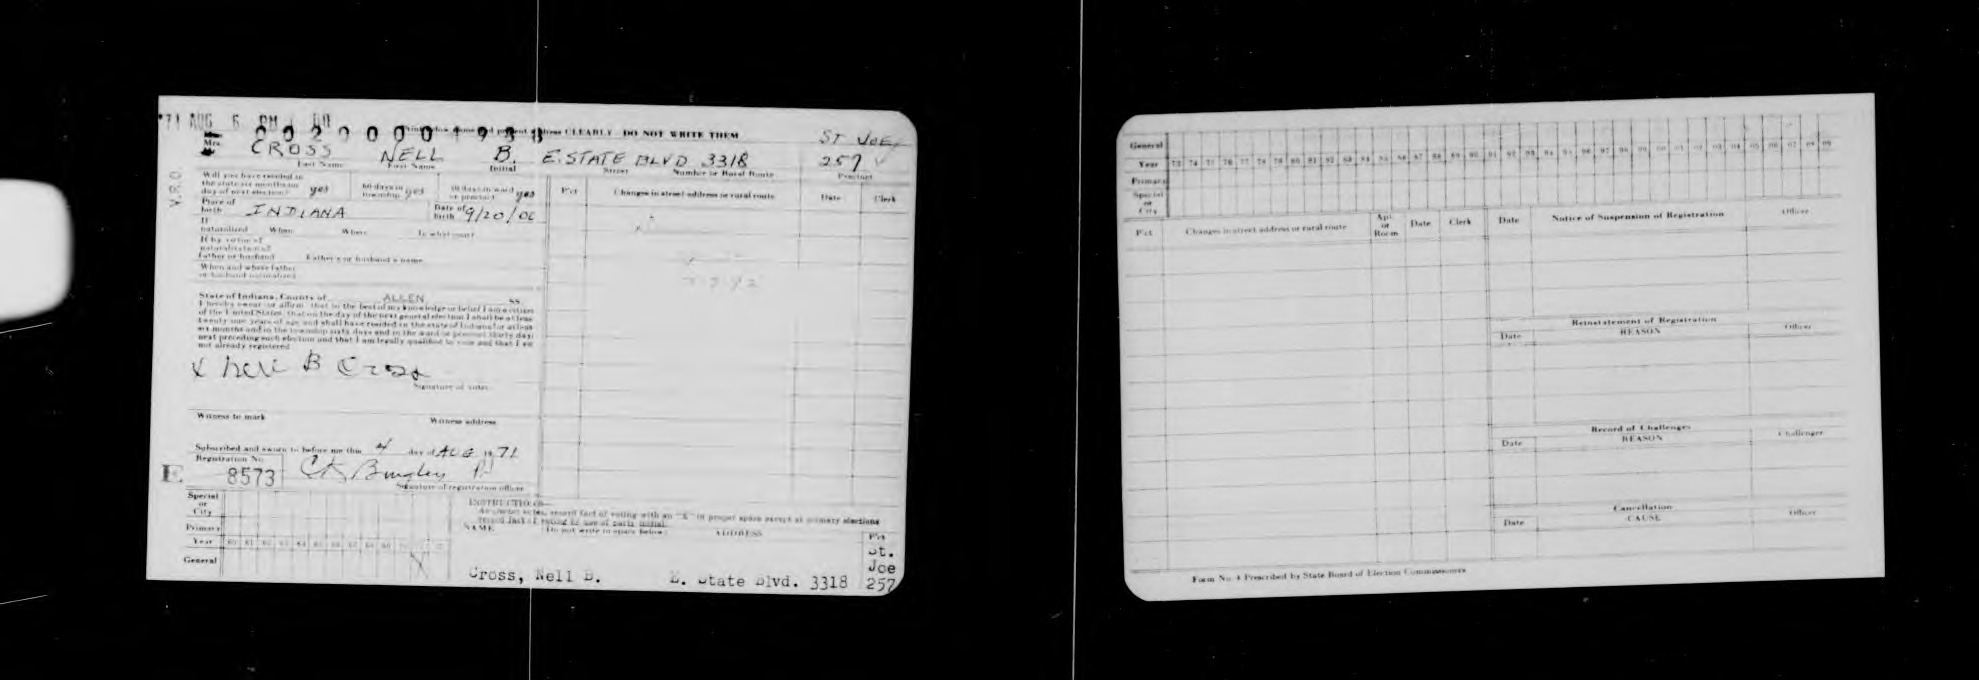 '71 AUG 6 PM
0020000 1988
Print below name and present address CLEARLY DO NOT WRITE THEM
ST JOE
Mrs. CROSS NELL B. E. STATE BLVD 3318 257
Last Name First Name Initial Street Number or Rural Route Precinct
V.R.O
Will you have resided in
the state six months on
day of next election? yes 60 days in township yes 30 days in ward or precinct yes
Pct Changes in street address or rural route Date Clerk
Place of birth INDIANA Date of birth 9/20/06
If naturalized When Where In what court
If by virtue of
naturalization of
father or husband Father's or husband's name
When and where father
or husband naturalized
State of Indiana, County of ALLEN ss.
I hereby swear or affirm that to the best of my knowledge or belief I am a citizen
of the United States, that on the day of the next general election I shall be at least
twenty-one years of age and shall have resided in the state of Indiana for at least
six months and in the township sixty days and in the ward or precinct thirty days
next preceding such election and that I am legally qualified to vote and that I am
not already registered
x Nell B Cross
Signature of voter
Witness to mark Witness address
Subscribed and sworn to before me this 4 day of AUG 1971
Registration No.
E 8573
Signature of registration officer
Special
or
City
Primary
Year 60 61 62 63 64 65 66 67 68 69
General
INSTRUCTIONS
record fact of voting with an "X" in proper space except at primary elections
record fact of voting by use of party initial.
NAME (Do not write in space below) ADDRESS Pct
Cross, Nell B. E. State Blvd. 3318
St.
Joe
257
General
Year 73 74 75 76 77 78 79 80 81 82 83 84 85 86 87 88 89 90 91 92 93 94 95 96 97 98 99 00 01 02 03 04 05 06 07 08 09
Primary
Special
or
City
Pct Changes in street address or rural route Apt. or Room Date Clerk
Date Notice of Suspension of Registration Officer
Reinstatement of Registration
Date REASON Officer
Record of Challenges
Date REASON Challenger
Cancellation
Date CAUSE Officer
Form No. 4 Prescribed by State Board of Election Commissioners